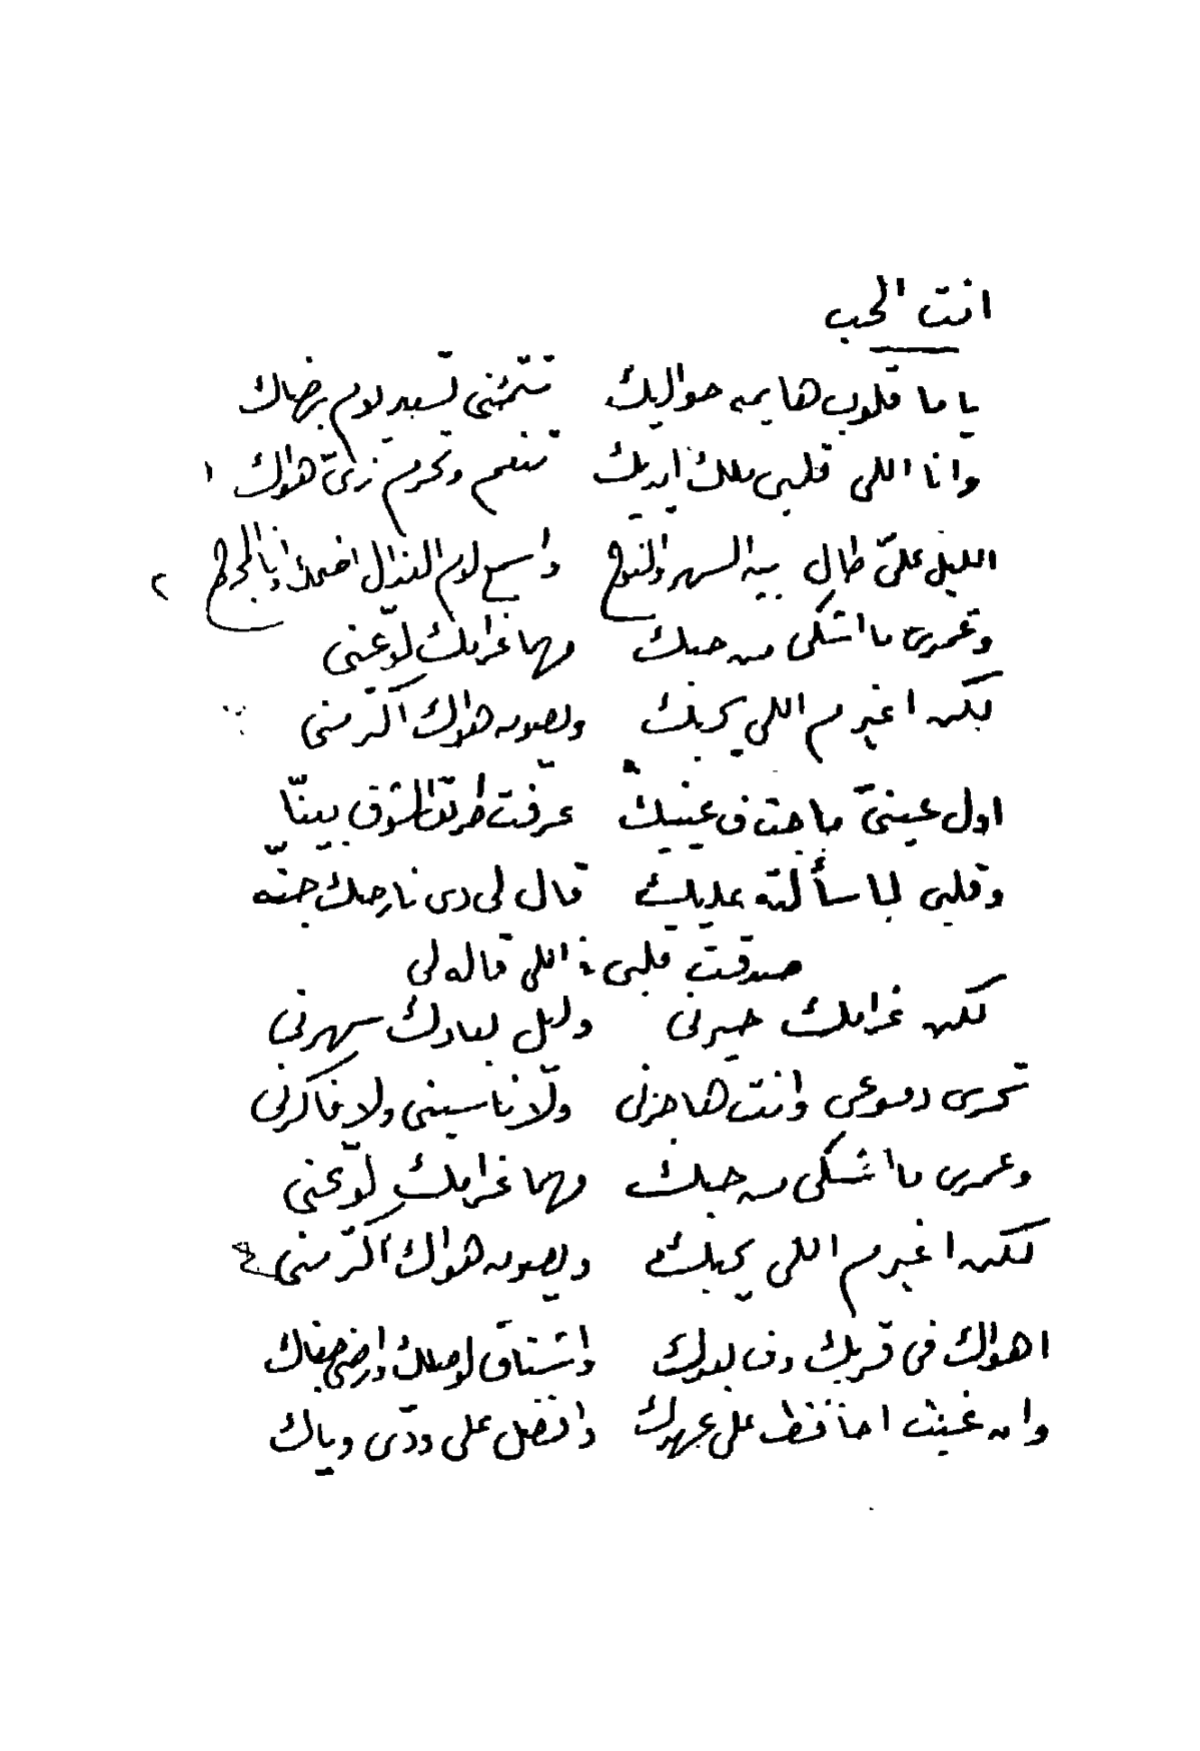 انت الحب
ياما قلوب هايمه حواليك تتمنى تسعد يوم برضاك
وانا اللى قلبى ملك ايديك تنعم وتحرم زىّ هواك ١
الليل علىّ طال بين السهر والنوح واسمع لوم العذال اضحك وانا المجروح ٢
وعمرى ما اشكى من حبك مهما غرامك لوّعنى
لكن اغير م اللى يحبك ويصون هواك اكتر منى
اول عينىّ ما جت ف عينيك عرفت طريق الشوق بيننّا
وقلبى لما سألته عليك قال لى دى نار حبك جنّه
صدقت قلبى ف اللى قاله لى
لكن غرامك حيرنى وليل بعادك سهرنى
تجرى دموعى وانت هاجرنى ولّا ناسينى ولا فاكرنى
وعمرى ما اشكى من حبك مهما غرامك لوّعنى
لكن اغير م اللى يحبك ويصون هواك اكتر منى
اهواك فى قربك وف بعدك واشتاق لوصلك وارضى جفاك
وان غبت احافظ على عهدك وافضل على ودّى وياك